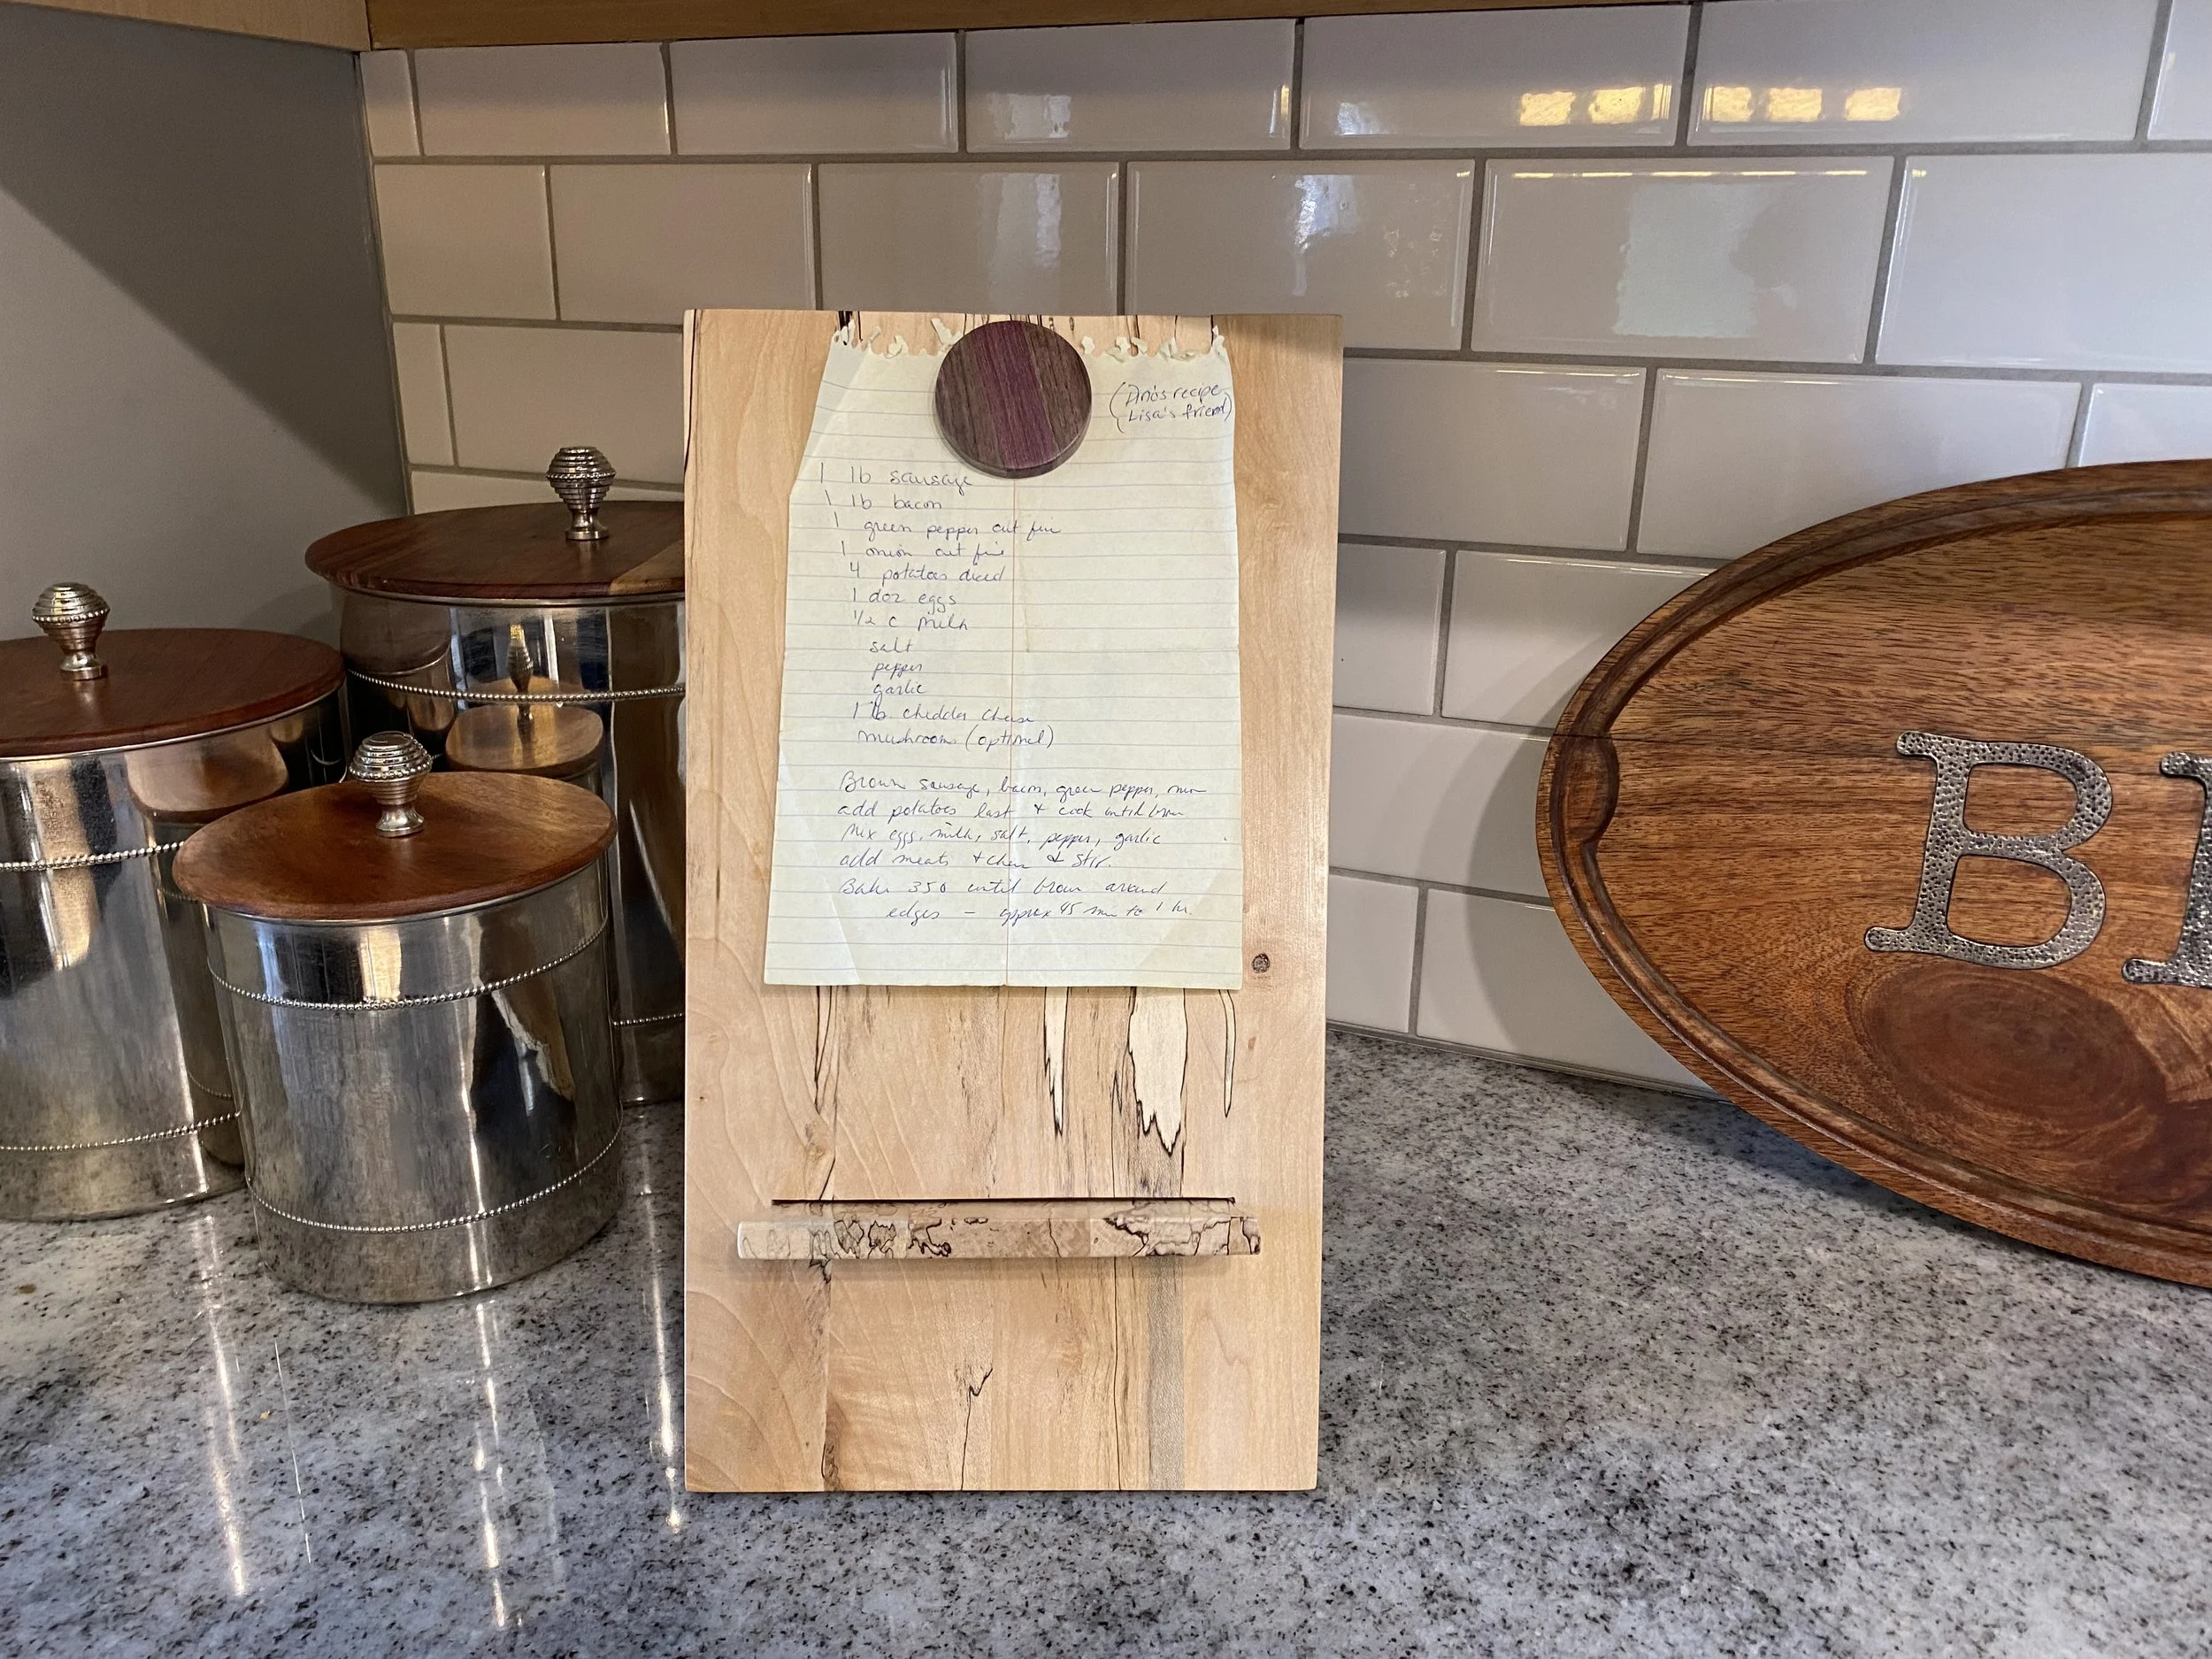 (Dino's recipe
(Lisa's friend)
1 lb sausage
1 lb bacon
1 green pepper cut fine
1 onion cut fine
4 potatoes diced
1 doz eggs
1/2 c milk
salt
pepper
garlic
1 lb cheddar cheese
mushrooms (optional)
Brown sausage, bacon, green pepper, onion
add potatoes last + cook until brown
Mix eggs, milk, salt, pepper, garlic
add meats + cheese & stir.
Bake 350 until brown around
edges - approx 45 min to 1 hr.
B